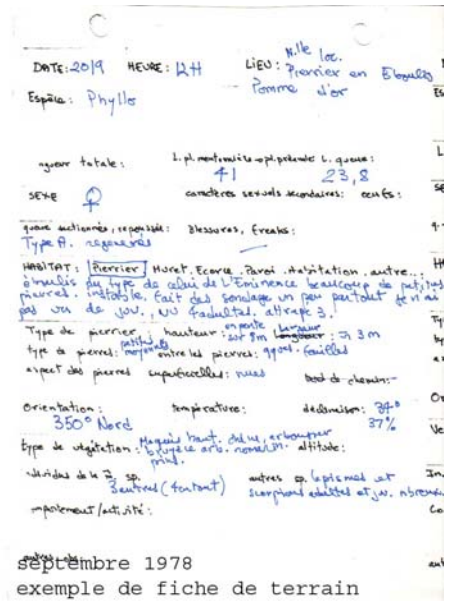 N.lle loc.
DATE: 20/9 HEURE: 12H LIEU: Pierrier en Eboulis
Espèce: Phyllo Pomme d'or
totale: L. queue:
41 23,8
SEXE ♀ caractères sexuels secondaires:
queue sectionnée, repoussée: Blessures, freaks:
Type A. regenerés
HABITAT: Pierrier, Muret, Ecorce, Paroi, Habitation, autre..:
éboulis du type de celui de L'Eminence beaucoup de petites
pierres. instable, fait des sondage un peu partout je n'ai
pas vu de juv., vu 4 adultes. attrapé 3.
Type de pierrier, hauteur: en pente sur 8m largeur longueur: 3m
type de pierres: petites moyennes entre les pierres: qques. failles
aspect des pierres superficielles: nues bord de chemin:-
Orientation: température: déclinaison: 34°
350° Nord 37%
type de végétation: Maquis haut. arbousier altitude:
bruyère arb. romarin.
sp. autres sp. lepismes et
3 autres (4 en tout) scorpions adultes et juv. nbreux
comportement/activité:
autres obs:
septembre 1978
exemple de fiche de terrain